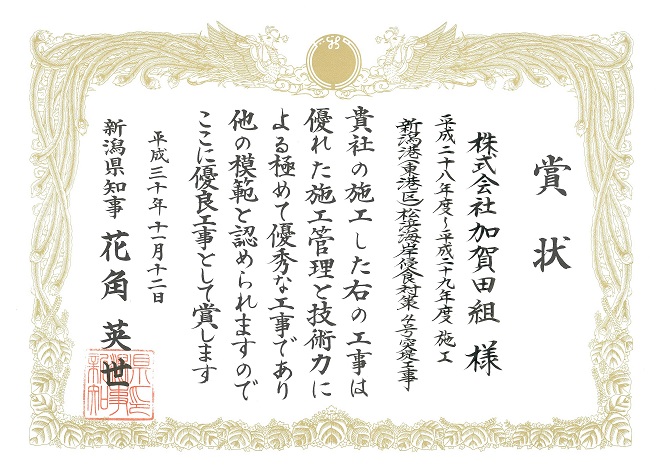 賞状
株式会社加賀田組 様
平成二十八年度～平成二十九年度 施工
新潟港(東港区)松浜海岸侵食対策4号突堤工事
貴社の施工した右の工事は
優れた施工管理と技術力に
よる極めて優秀な工事であり
他の模範と認められますので
ここに優良工事として賞します
平成三十年十一月十二日
新潟県知事 花角英世
新潟県知事之印